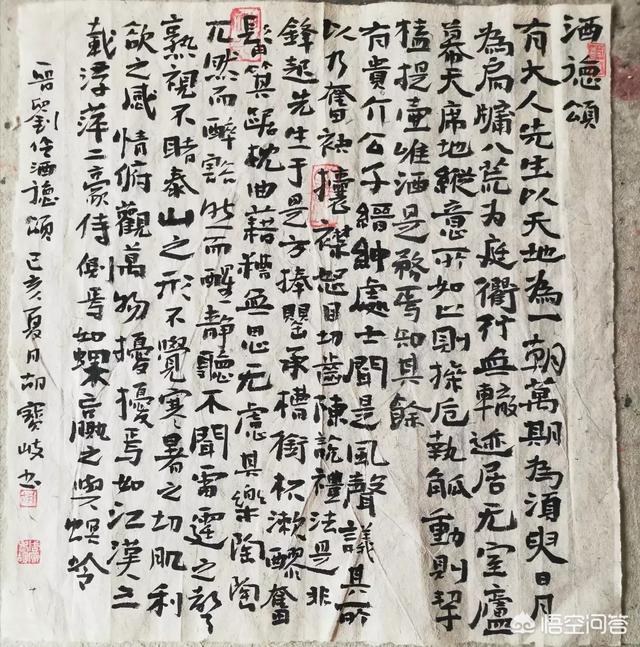 酒德頌
有大人先生以天地為一朝萬期為須臾日月
為扃牖八荒为庭衢行無轍迹居无室廬
幕天席地縱意所如止則操卮執觚動則挈
榼提壺唯酒是務焉知其餘
有貴介公子縉紳處士聞是風聲議其所
以乃奮袂攘襟怒目切齒陳説禮法是非
鋒起先生于是方捧罌承槽銜杯漱醪奮
髯箕踞枕曲藉糟無思无慮其樂陶陶
兀然而醉豁然而醒靜聽不聞雷霆之聲
熟視不睹泰山之形不覺寒暑之切肌利
欲之感情俯觀萬物擾擾焉如江漢之
載浮萍二豪侍側焉如蜾蠃之與螟蛉
晉劉伶酒德頌 己亥夏月胡寶岐书
悟空问答